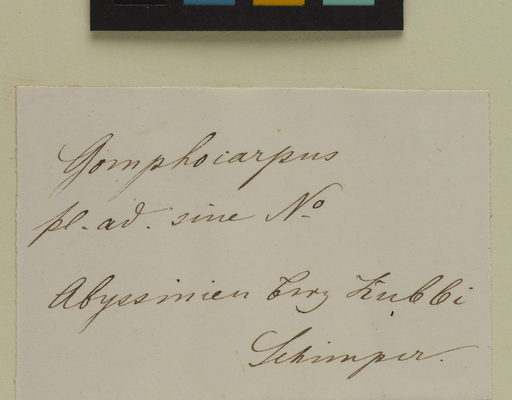 Gomphocarpus
pl. ad. sine No
Abyssinien Berg Kubbi
Schimper.